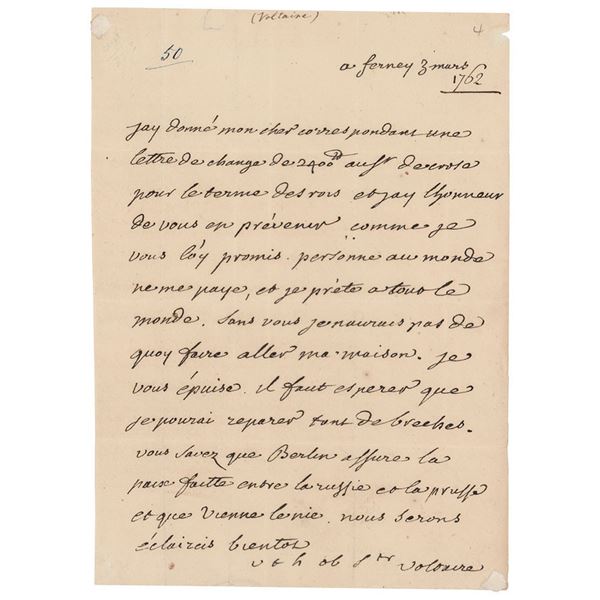 (Voltaire)
4
50
a ferney 3 mars
1762
jay donné mon cher correspondant une
lettre de change de 2400ᵗᵗ au Sʳ de crose
pour le terme des rois et jay lhonneur
de vous en prévenir comme je
vous l'ay promis. personne au monde
ne me paye, et je prete a tout le
monde. sans vous je naurais pas de
quoy faire aller ma maison. je
vous épuise. il faut esperer que
je pourai reparer tant de breches.
vous savez que Berlin assure la
paix faitte entre la russie et la prusse
et que vienne le nie. nous serons
éclaircis bientot
v t h ob sᵗʳ voltaire